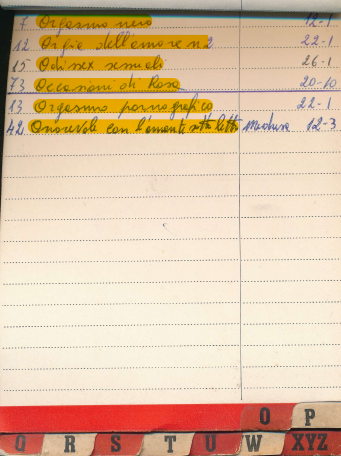 7 Orgasmo nero 12-1
12 Orgie dell'amore n2 22-1
15 Odisex sexuali 26-1
73 Occasioni di Rosa 20-10
13 Orgasmo pornografico 22-1
42 Onorevole con l'amante sotto il letto Medusa 12-3
O P
Q R S T U W XYZ